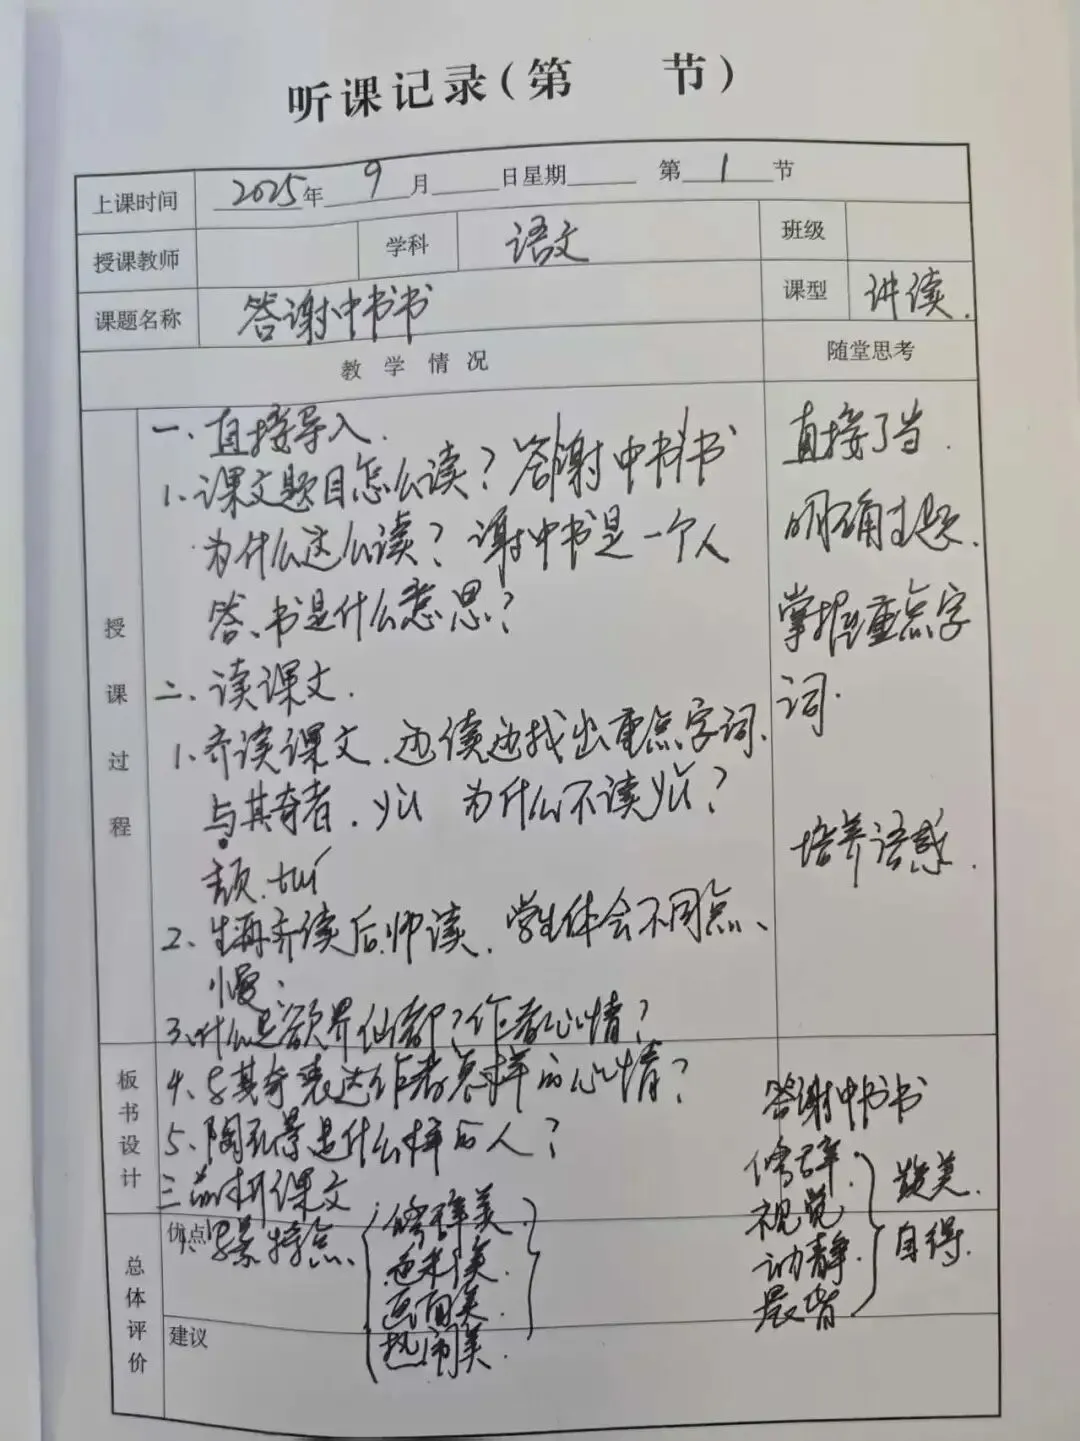 听课记录(第 节)
上课时间 2025年 9 月 日星期 第 1 节
授课教师 学科 语文 班级
课题名称 答谢中书书 课型 讲读.
教学情况 随堂思考
授课过程
一、直接导入.
1、课文题目怎么读?答谢中书书
为什么这么读?谢中书是一个人
答、书是什么意思?
二、读课文.
1、齐读课文.边读边找出重点字词.
与其奇者.yù 为什么不读yǔ?
颓.tuí
2、生再齐读后.师读.学生体会不同点、
慢;
3、什么是欲界仙都?作者心情?
直接了当.
明确主题.
掌握重点字
词.
培养语感.
板书设计
4、与其奇表达作者怎样的心情?
5、陶弘景是什么样的人?
三、品析课文
1、写景特点.
修辞美
色彩美.
画面美.
热闹美.
答谢中书书
修辞.
视觉
动静.
晨昏
赞美.
自得.
总体评价
优点
建议